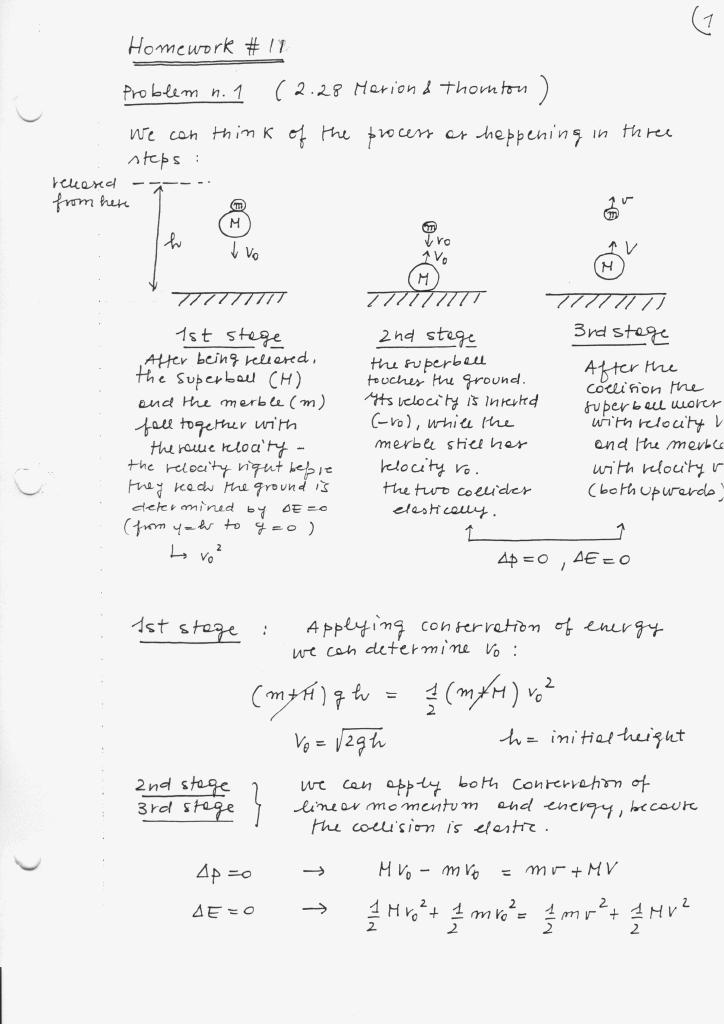 (1
Homework # 11
Problem n. 1 ( 2.28 Marion & Thornton )
We can think of the process as happening in three
steps :
released
from here
h
m
M
v₀
m
v₀
v₀
M
v
m
V
M
1st stage
After being released,
the superball (M)
and the marble (m)
fall together with
the same velocity -
the velocity right before
they reach the ground is
determined by ΔE=0
(from y=h to y=0)
↳ v₀²
2nd stage
the superball
touches the ground.
Its velocity is inverted
(-v₀), while the
marble still has
velocity v₀.
the two collides
elastically.
3rd stage
After the
collision the
superball moves
with velocity V
and the marble
with velocity v
(both upwards)
Δp=0 , ΔE=0
1st stage : Applying conservation of energy
we can determine v₀ :
(m+M) g h = 1/2 (m+M) v₀²
v₀ = √2gh h = initial height
2nd stage
3rd stage
} we can apply both conservation of
linear momentum and energy, because
the collision is elastic.
Δp=0 → Mv₀ - mv₀ = mv + MV
ΔE=0 → 1/2 Mv₀² + 1/2 mv₀² = 1/2 mv² + 1/2 MV²